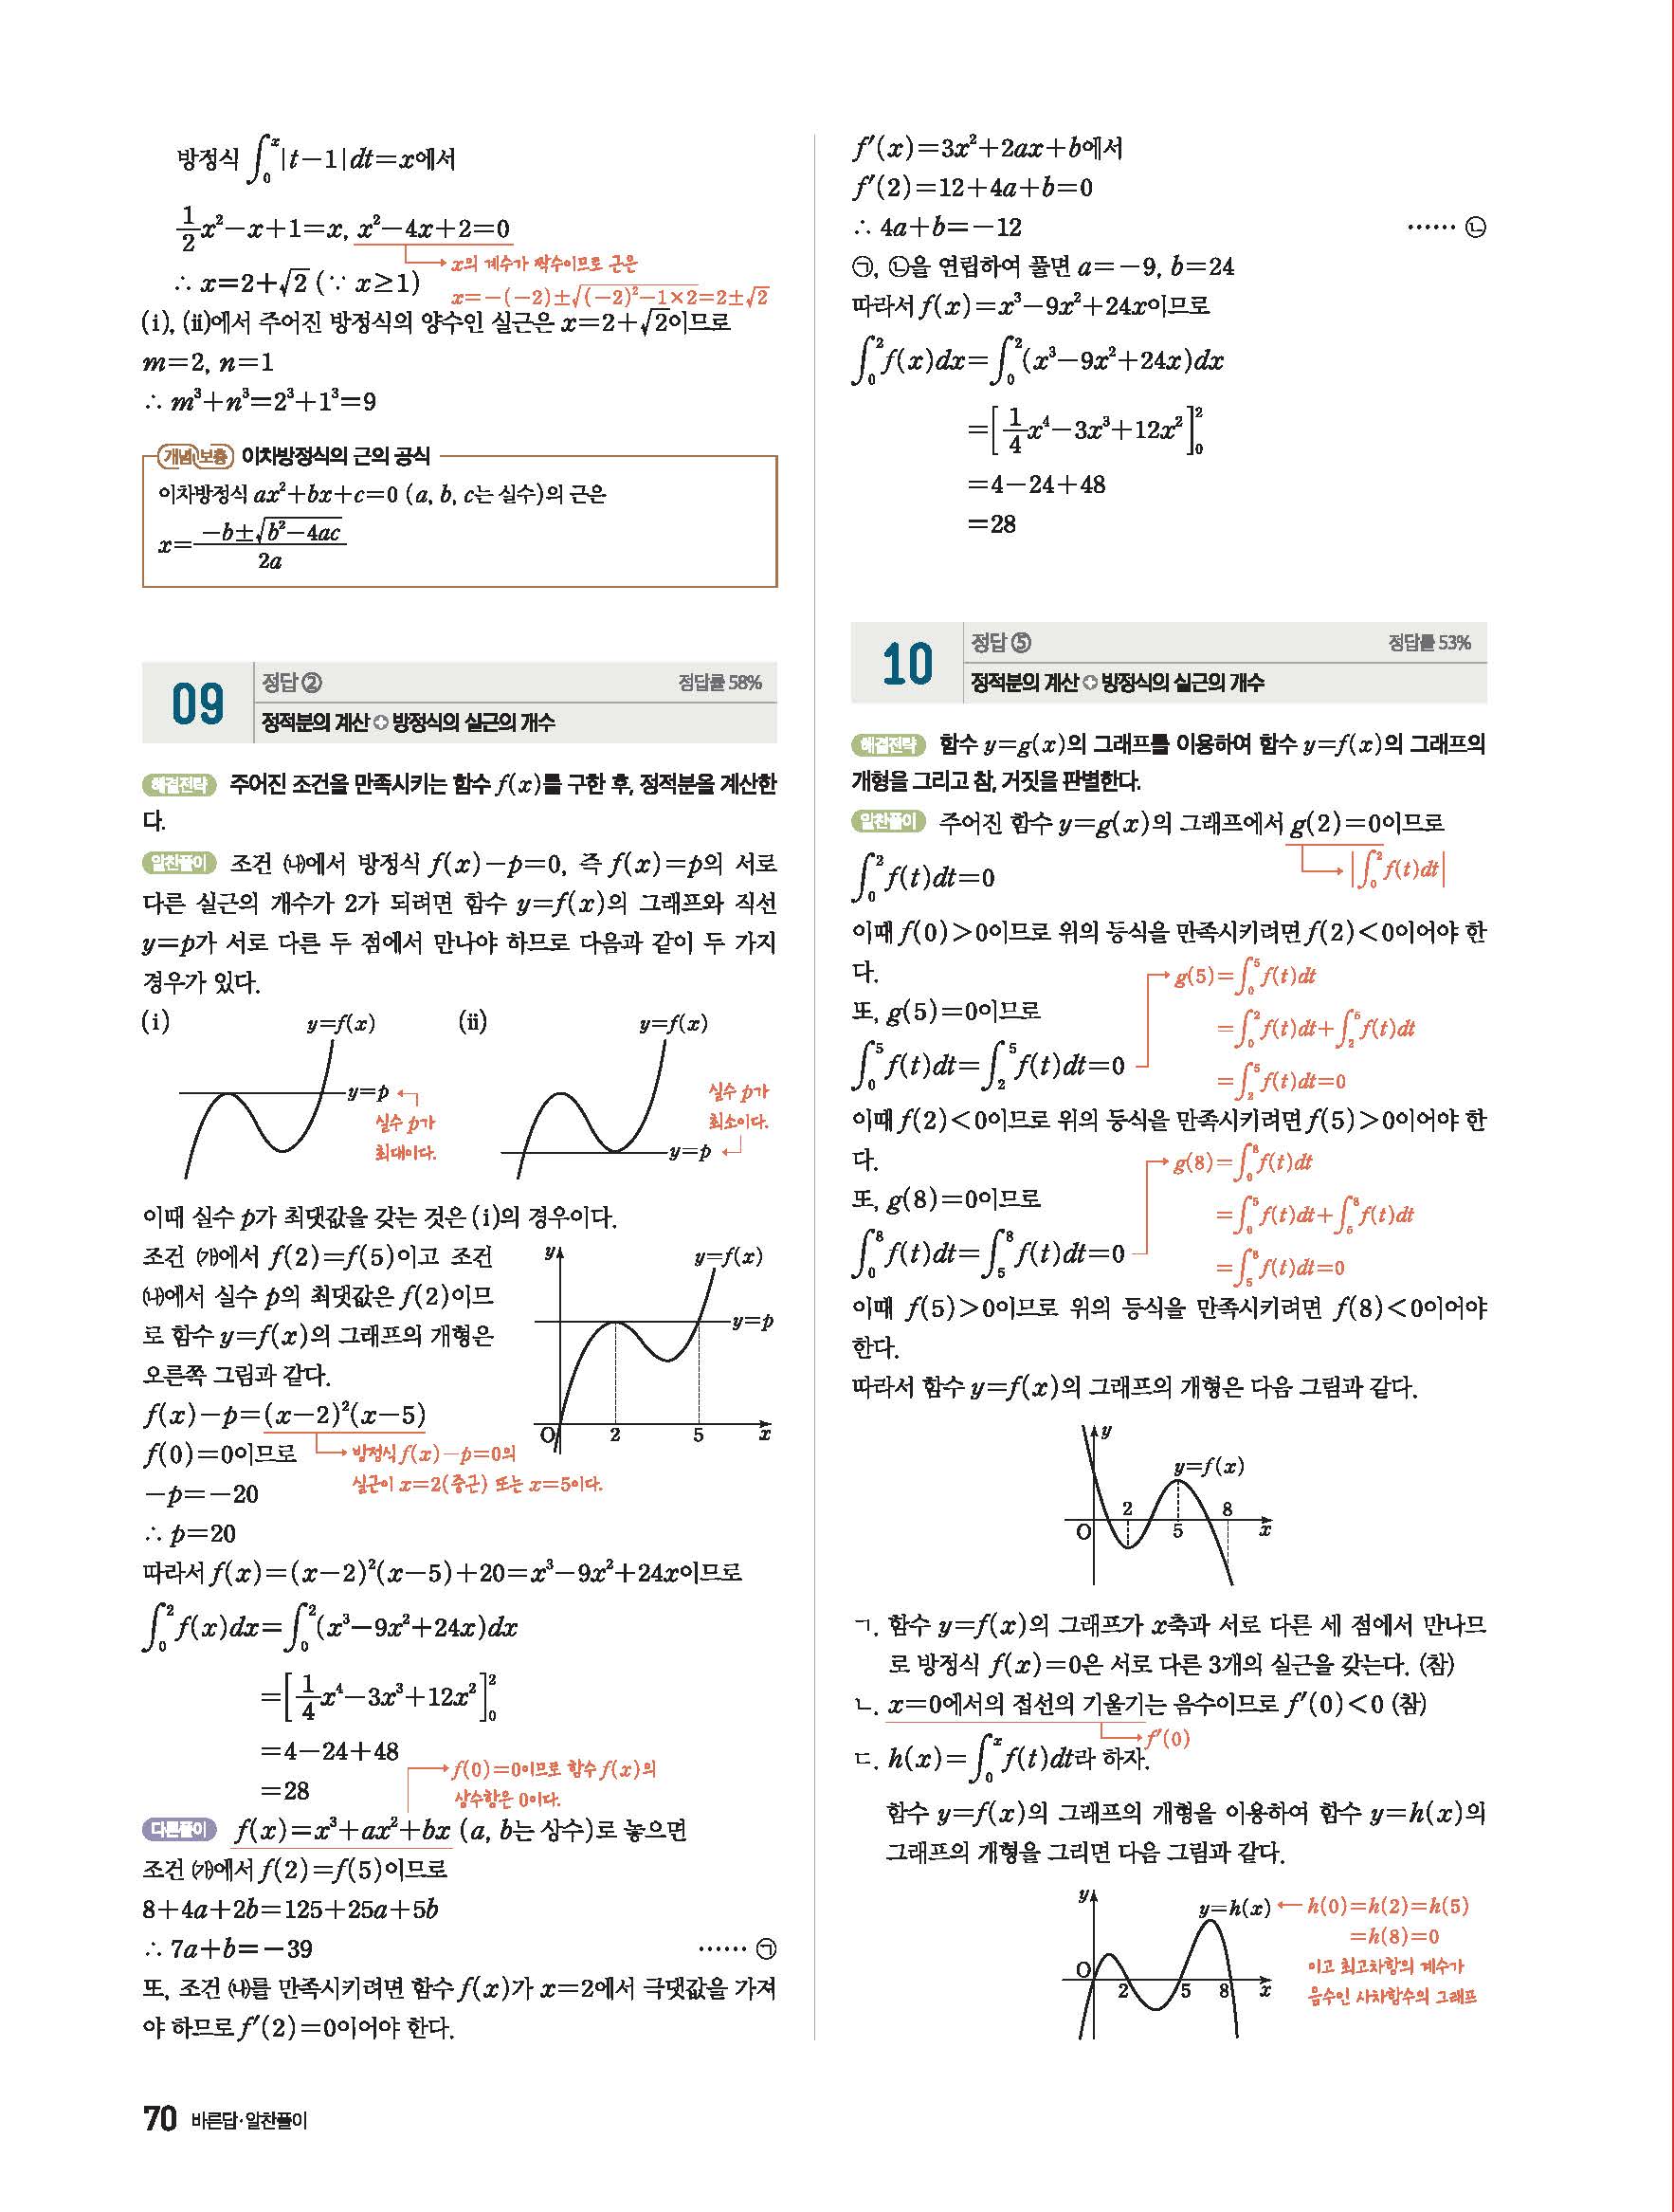 방정식 ∫₀ˣ|t−1|dt=x에서
1/2x²−x+1=x, x²−4x+2=0
x의 계수가 짝수이므로 근은
∴ x=2+√2 (∵ x≥1)
x=−(−2)±√((−2)²−1×2)=2±√2
(i), (ii)에서 주어진 방정식의 양수인 실근은 x=2+√2이므로
m=2, n=1
∴ m³+n³=2³+1³=9
개념 보충 이차방정식의 근의 공식
이차방정식 ax²+bx+c=0 (a, b, c는 실수)의 근은
x=(−b±√(b²−4ac))/2a
09
정답 ②
정답률 58%
정적분의 계산 + 방정식의 실근의 개수
해결전략 주어진 조건을 만족시키는 함수 f(x)를 구한 후, 정적분을 계산한
다.
알찬풀이 조건 ㈏에서 방정식 f(x)−p=0, 즉 f(x)=p의 서로
다른 실근의 개수가 2가 되려면 함수 y=f(x)의 그래프와 직선
y=p가 서로 다른 두 점에서 만나야 하므로 다음과 같이 두 가지
경우가 있다.
(i)
y=f(x)
y=p
실수 p가
최대이다.
(ii)
y=f(x)
실수 p가
최소이다.
y=p
이때 실수 p가 최댓값을 갖는 것은 (i)의 경우이다.
조건 ㈎에서 f(2)=f(5)이고 조건
㈏에서 실수 p의 최댓값은 f(2)이므
로 함수 y=f(x)의 그래프의 개형은
오른쪽 그림과 같다.
y
y=f(x)
y=p
O
2
5
x
f(x)−p=(x−2)²(x−5)
f(0)=0이므로
방정식 f(x)−p=0의
실근이 x=2(중근) 또는 x=5이다.
−p=−20
∴ p=20
따라서 f(x)=(x−2)²(x−5)+20=x³−9x²+24x이므로
∫₀²f(x)dx=∫₀²(x³−9x²+24x)dx
=[1/4x⁴−3x³+12x²]₀²
=4−24+48
=28
f(0)=0이므로 함수 f(x)의
상수항은 0이다.
다른풀이 f(x)=x³+ax²+bx (a, b는 상수)로 놓으면
조건 ㈎에서 f(2)=f(5)이므로
8+4a+2b=125+25a+5b
∴ 7a+b=−39 …… ㉠
또, 조건 ㈏를 만족시키려면 함수 f(x)가 x=2에서 극댓값을 가져
야 하므로 f′(2)=0이어야 한다.
f′(x)=3x²+2ax+b에서
f′(2)=12+4a+b=0
∴ 4a+b=−12 …… ㉡
㉠, ㉡을 연립하여 풀면 a=−9, b=24
따라서 f(x)=x³−9x²+24x이므로
∫₀²f(x)dx=∫₀²(x³−9x²+24x)dx
=[1/4x⁴−3x³+12x²]₀²
=4−24+48
=28
10
정답 ⑤
정답률 53%
정적분의 계산 + 방정식의 실근의 개수
해결전략 함수 y=g(x)의 그래프를 이용하여 함수 y=f(x)의 그래프의
개형을 그리고 참, 거짓을 판별한다.
알찬풀이 주어진 함수 y=g(x)의 그래프에서 g(2)=0이므로
|∫₀²f(t)dt|
∫₀²f(t)dt=0
이때 f(0)>0이므로 위의 등식을 만족시키려면 f(2)<0이어야 한
다.
또, g(5)=0이므로
∫₀⁵f(t)dt=∫₂⁵f(t)dt=0
g(5)=∫₀⁵f(t)dt
=∫₀²f(t)dt+∫₂⁵f(t)dt
=∫₂⁵f(t)dt=0
이때 f(2)<0이므로 위의 등식을 만족시키려면 f(5)>0이어야 한
다.
또, g(8)=0이므로
∫₀⁸f(t)dt=∫₅⁸f(t)dt=0
g(8)=∫₀⁸f(t)dt
=∫₀⁵f(t)dt+∫₅⁸f(t)dt
=∫₅⁸f(t)dt=0
이때 f(5)>0이므로 위의 등식을 만족시키려면 f(8)<0이어야
한다.
따라서 함수 y=f(x)의 그래프의 개형은 다음 그림과 같다.
y
y=f(x)
2
8
O
5
x
ㄱ. 함수 y=f(x)의 그래프가 x축과 서로 다른 세 점에서 만나므
로 방정식 f(x)=0은 서로 다른 3개의 실근을 갖는다. (참)
ㄴ. x=0에서의 접선의 기울기는 음수이므로 f′(0)<0 (참)
f′(0)
ㄷ. h(x)=∫₀ˣf(t)dt라 하자.
함수 y=f(x)의 그래프의 개형을 이용하여 함수 y=h(x)의
그래프의 개형을 그리면 다음 그림과 같다.
y
y=h(x)
O
2
5
8
x
h(0)=h(2)=h(5)
=h(8)=0
이고 최고차항의 계수가
음수인 사차함수의 그래프
70 바른답·알찬풀이